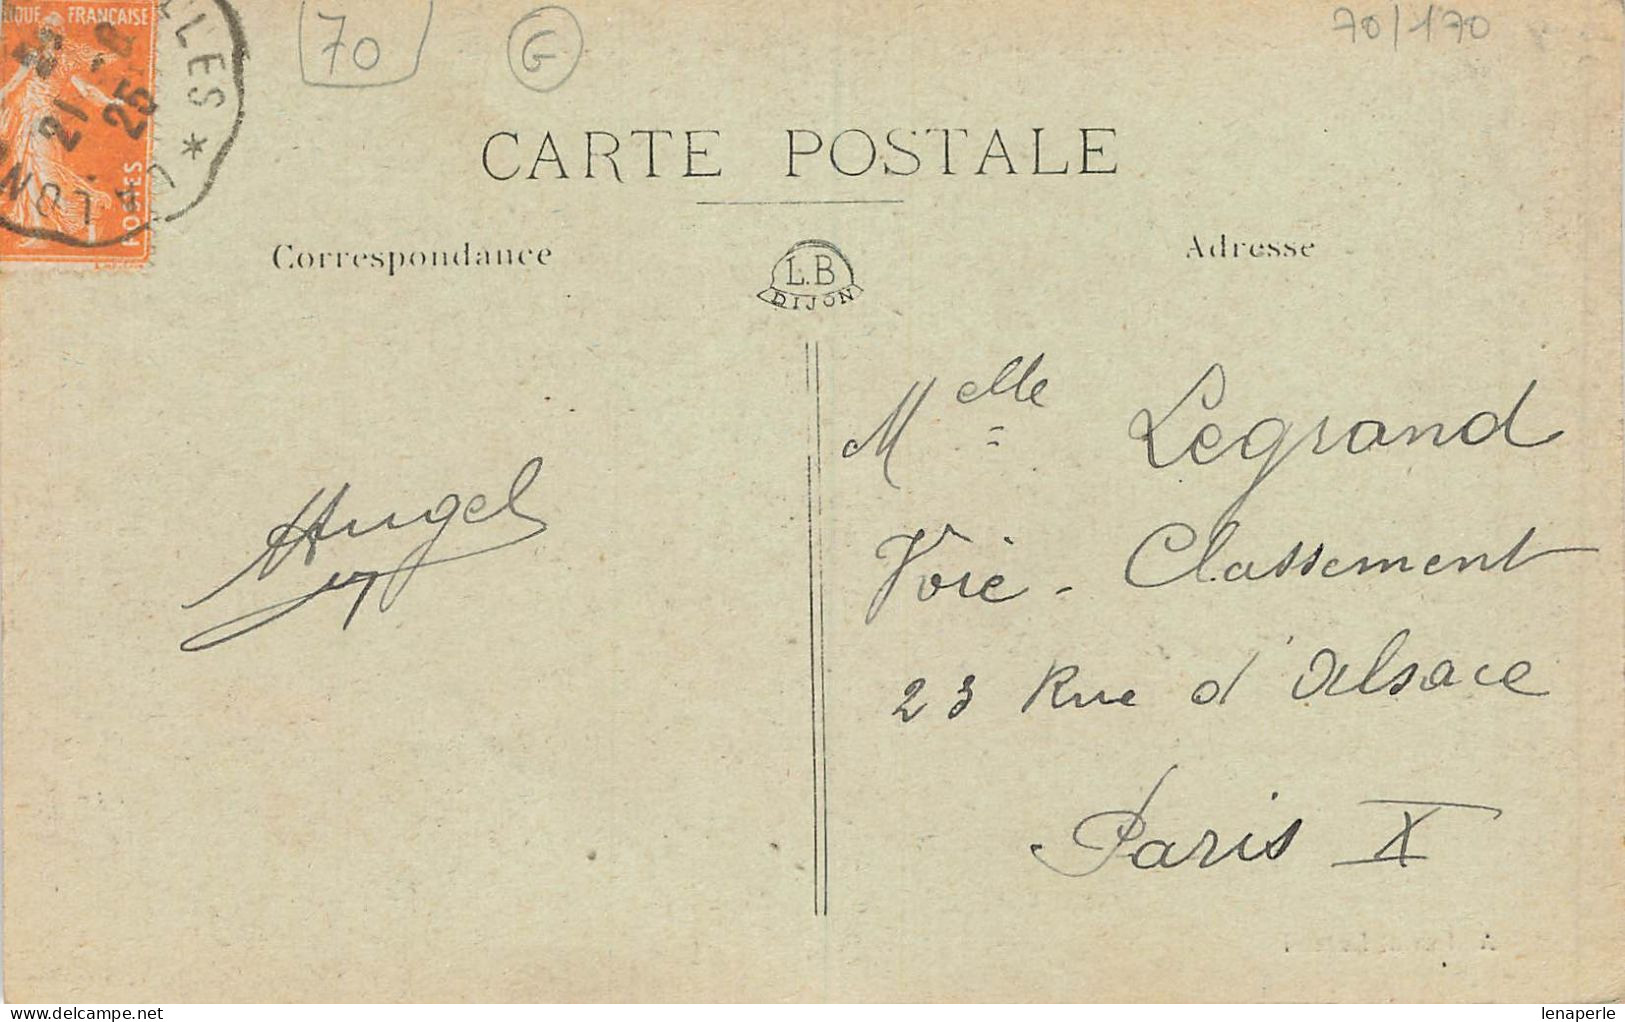 QUE FRANÇAISE
70
G
70/170
LLES *
21 -8
25
POSTES
CARTE POSTALE
Correspondance
L.B
DIJON
Adresse
Melle Legrand
Voie - Classement
23 Rue d'Alsace
Paris X
Angel
lenaperle